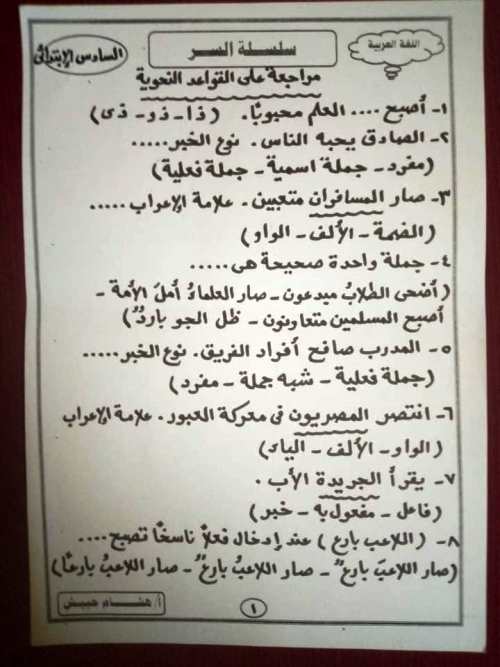 اللغة العربية
سلسلة السر
السادس الابتدائى
مراجعة على القواعد النحوية
١- أصبح .... العلم محبوبًا. (ذا - ذو - ذى)
٢- الصادق يحبه الناس. نوع الخبر.....
(مفرد - جملة اسمية - جملة فعلية)
٣- صار المسافران متعبين. علامة الإعراب .....
(الضمة - الألف - الواو)
٤- جملة واحدة صحيحة هى.....
(أضحى الطلابُ مبدعون - صار العلماءُ أملَ الأمة -
أصبح المسلمين متعاونون - ظل الجو باردٌ)
٥- المدرب صافح أفراد الفريق. نوع الخبر.....
(جملة فعلية - شبه جملة - مفرد)
٦- انتصر المصريون فى معركة العبور. علامة الإعراب
(الواو - الألف - الياء)
٧- يقرأ الجريدة الأب.
(فاعل - مفعول به - خبر)
٨- (اللاعب بارع) عند إدخال فعلاً ناسخًا تصبح....
(صار اللاعبَ بارعٌ - صار اللاعبُ بارعٌ - صار اللاعبُ بارعًا)
١
أ/ هشام حبيش